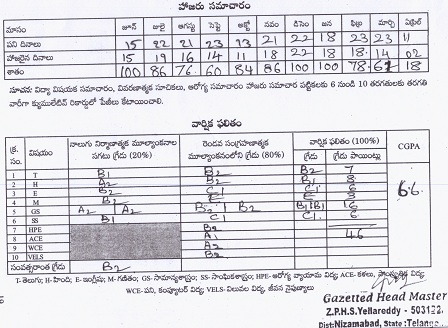 హాజరు సమాచారం
మాసం జూన్ జులై ఆగస్టు సెప్టె అక్టో నవం డిసెం జన ఫిబ్ర మార్చి ఏప్రిల్
పని దినాలు 15 22 21 23 13 21 22 18 23 23 11
హాజరైన దినాలు 15 19 16 14 11 18 22 18 18 14 02
శాతం 100 86 76 60 84 86 100 100 78 61 18
సూచన: విద్యా విషయక సమాచారం, వివరణాత్మక సూచికలు, ఆరోగ్య సమాచారం హాజరు సమాచార పట్టికలకు 6 నుండి 10 తరగతులకు తరగతి
వారీగా క్యుములేటివ్ రికార్డులో పేజీలు కేటాయించాలి.
వార్షిక ఫలితం
క్ర. సం. విషయం నాలుగు నిర్మాణాత్మక మూల్యాంకనాల సగటు గ్రేడు (20%) రెండవ సంగ్రహణాత్మక మూల్యాంకనంలోని గ్రేడు (80%) వార్షిక ఫలితం (100%) గ్రేడు గ్రేడు పాయింట్లు CGPA
1 T B1 B2 B2 7
2 H B2 B1 B1 8
3 E B2 C1 C1 6
4 M B2 C1 C1 6
5 GS A2 A2 B2 B2 B1 B1 16
6 SS B1 C1 C1 6
6.6
7 HPE B2 46
8 ACE A1
9 WCE B2
10 VELS B2
సంవత్సరాంత గ్రేడు B2
T- తెలుగు; H-హింది; E- ఇంగ్లీషు; M-గణితం; GS- సామాన్యశాస్త్రం; SS-సాంఘికశాస్త్రం; HPE- ఆరోగ్య వ్యాయామ విద్య; ACE-కళలు, సాంస్కృతిక విద్య;
WCE-పని, కంప్యూటర్ విద్య; VELS-విలువల విద్య, జీవన నైపుణ్యాలు
Gazetted Head Master
Z.P.H.S.Yellareddy - 503122
Dist:Nizamabad, State:Telanga